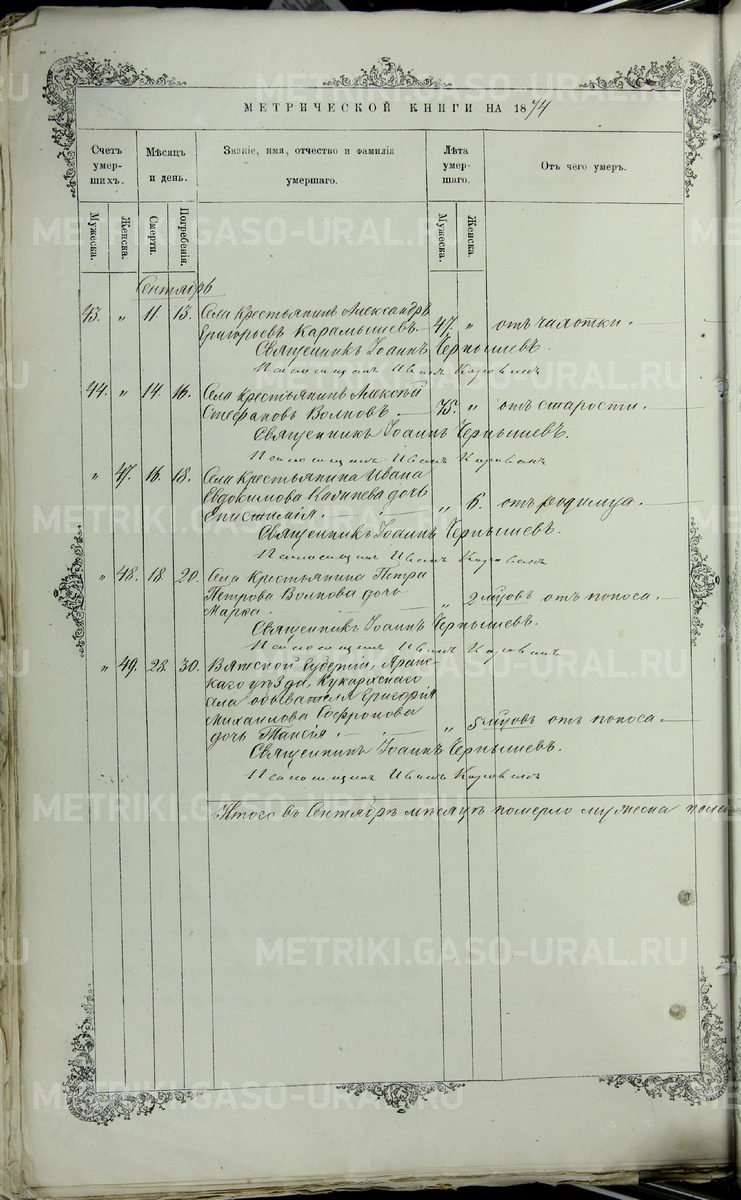 МЕТРИЧЕСКОЙ КНИГИ НА 1874
Счетъ умершихъ.
Мѣсяцъ и день.
Званіе, имя, отчество и фамилія умершаго.
Лѣта умершаго.
Отъ чего умеръ.
Мужеска.
Женска.
Смерти.
Погребенія.
Мужеска.
Женска.
Сентябрь
43. „ 11. 13. Села крестьянинъ Александръ
Григорьевъ Карамышевъ 47. „ отъ чахотки.
Священникъ Іоаннъ Чернышевъ.
Псаломщикъ
44. „ 14. 16. Села крестьянинъ Алексѣй
Стефановъ Волковъ. 75. „ отъ старости.
Священникъ Іоаннъ Чернышевъ.
Псаломщикъ Иванъ
„ 47. 16. 18. Села крестьянина Ивана
Евдокимова дочь
Епистимія. „ 6. отъ родимца.
Священникъ Іоаннъ Чернышевъ.
Псаломщикъ Иванъ
„ 48. 18. 20. Села крестьянина Петра
Петрова Волкова дочь
Марѳа. „ 2 мѣсцовъ отъ поноса.
Священникъ Іоаннъ Чернышевъ.
Псаломщикъ Иванъ
„ 49. 28. 30. Вятской губерніи, Яран-
скаго уѣзда, Кукарскаго
села обывателя Григорія
Михаилова Софронова
дочь Таисія. „ 5 мѣсцовъ отъ поноса.
Священникъ Іоаннъ Чернышевъ.
Псаломщикъ Иванъ
Итого въ Сентябрѣ мѣсяцѣ померло мужеска пола
METRIKI.GASO-URAL.RU